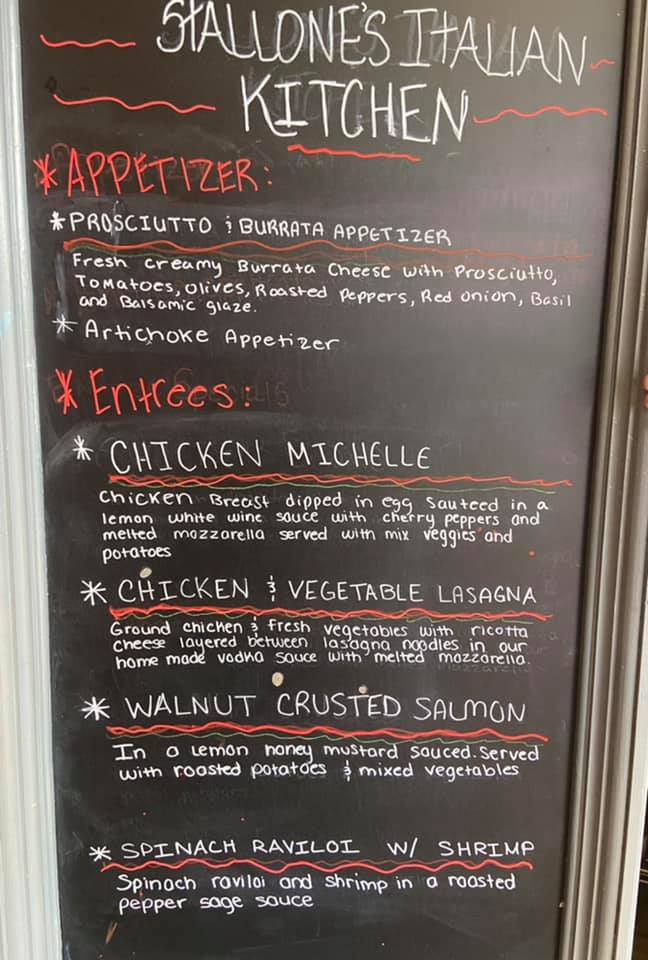 STALLONE'S ITALIAN
KITCHEN
* APPETIZER:
* PROSCIUTTO & BURRATA APPETIZER
Fresh creamy Burrata Cheese with Prosciutto,
Tomatoes, olives, Roasted Peppers, Red onion, Basil
and Balsamic glaze.
* Artichoke Appetizer
* Entrees:
* CHICKEN MICHELLE
Chicken Breast dipped in egg sauteed in a
lemon white wine sauce with cherry peppers and
melted mozzarella served with mix veggies and
potatoes
* CHICKEN & VEGETABLE LASAGNA
Ground chicken & fresh vegetables with ricotta
cheese layered between lasagna noodles in our
home made vodka sauce with melted mozzarella.
* WALNUT CRUSTED SALMON
In a Lemon honey mustard sauced. Served
with roasted potatoes & mixed vegetables
* SPINACH RAVILOI W/ SHRIMP
Spinach raviloi and shrimp in a roasted
pepper sage sauce